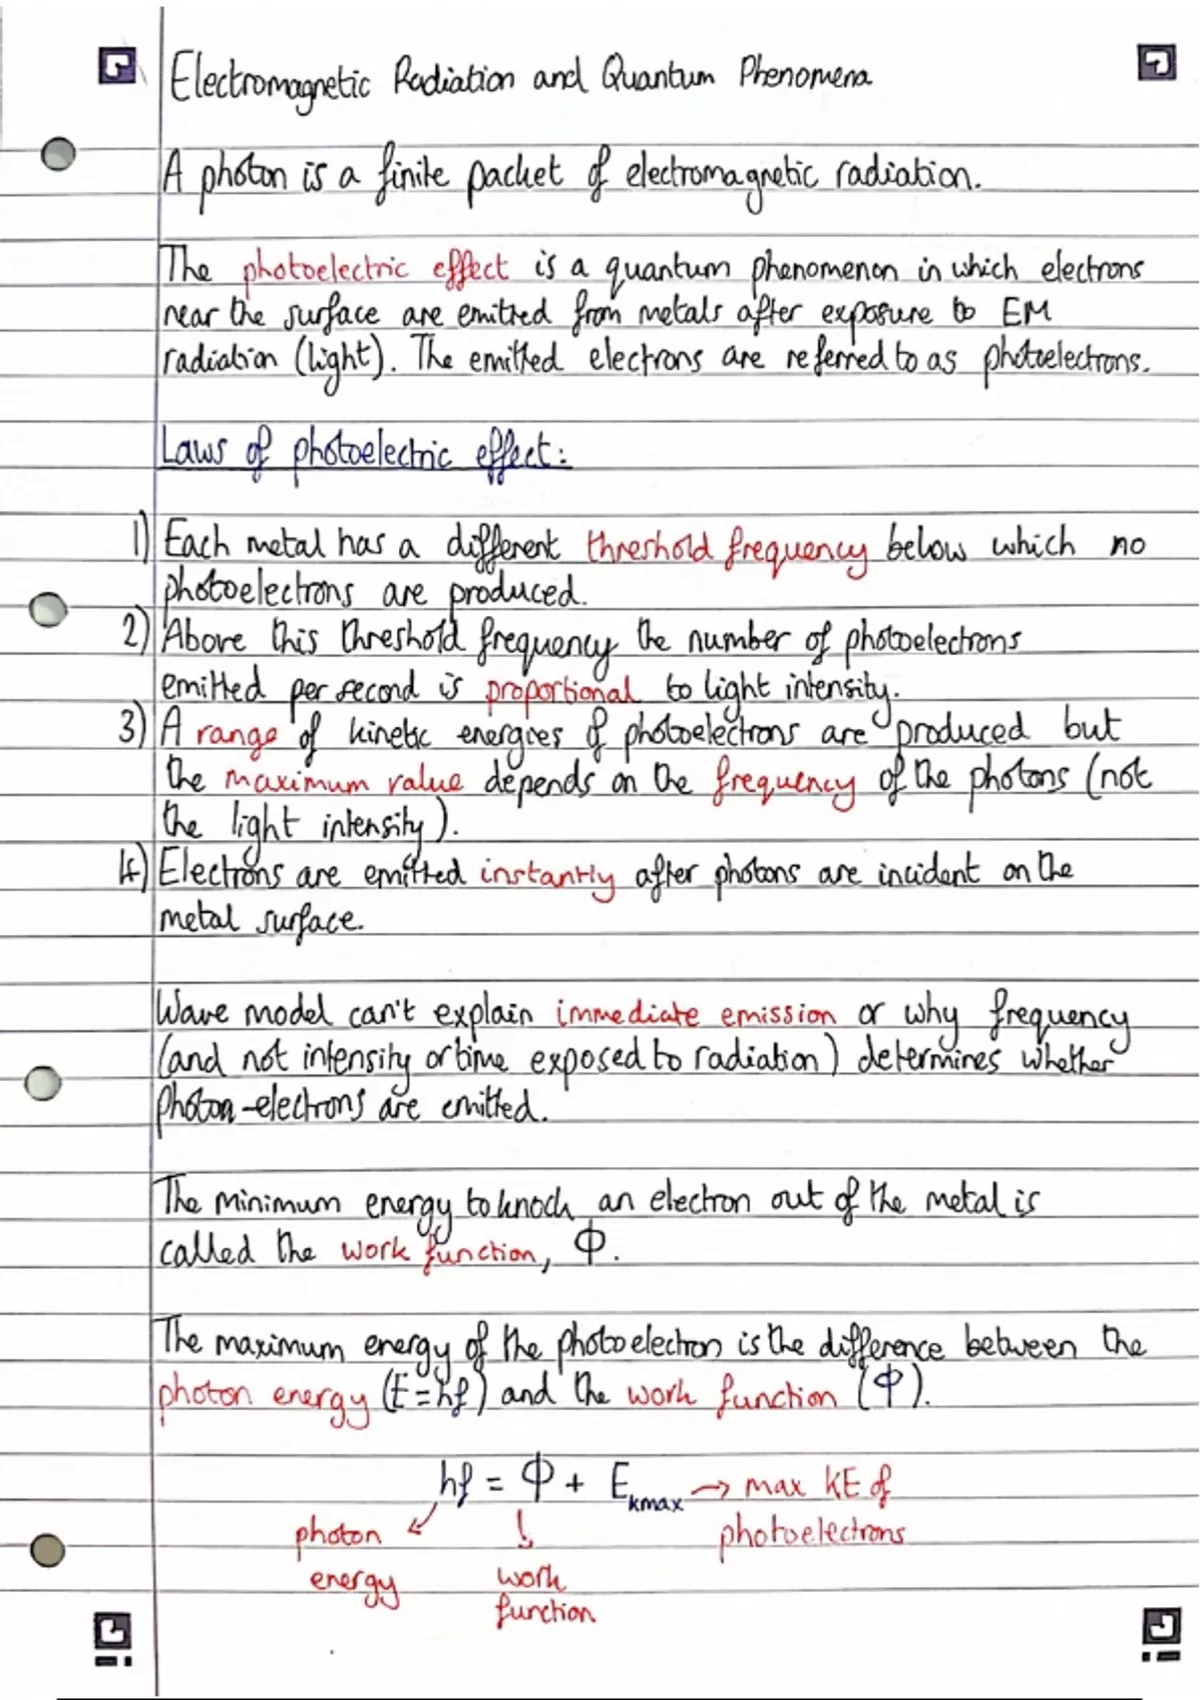 Electromagnetic Radiation and Quantum Phenomena
A photon is a finite packet of electromagnetic radiation.
The photoelectric effect is a quantum phenomenon in which electrons
near the surface are emitted from metals after exposure to EM
radiation (light). The emitted electrons are referred to as photoelectrons.
Laws of photoelectric effect:
1) Each metal has a different threshold frequency below which no
photoelectrons are produced.
2) Above this threshold frequency the number of photoelectrons
emitted per second is proportional to light intensity.
3) A range of kinetic energies of photoelectrons are produced but
the maximum value depends on the frequency of the photons (not
the light intensity).
4) Electrons are emitted instantly after photons are incident on the
metal surface.
Wave model can't explain immediate emission or why frequency
(and not intensity or time exposed to radiation) determines whether
photon-electrons are emitted.
The minimum energy to knock an electron out of the metal is
called the work function, Φ.
The maximum energy of the photoelectron is the difference between the
photon energy (E=hf) and the work function (Φ).
hf = Φ + Ekmax → max KE of
photon photoelectrons
energy work
function